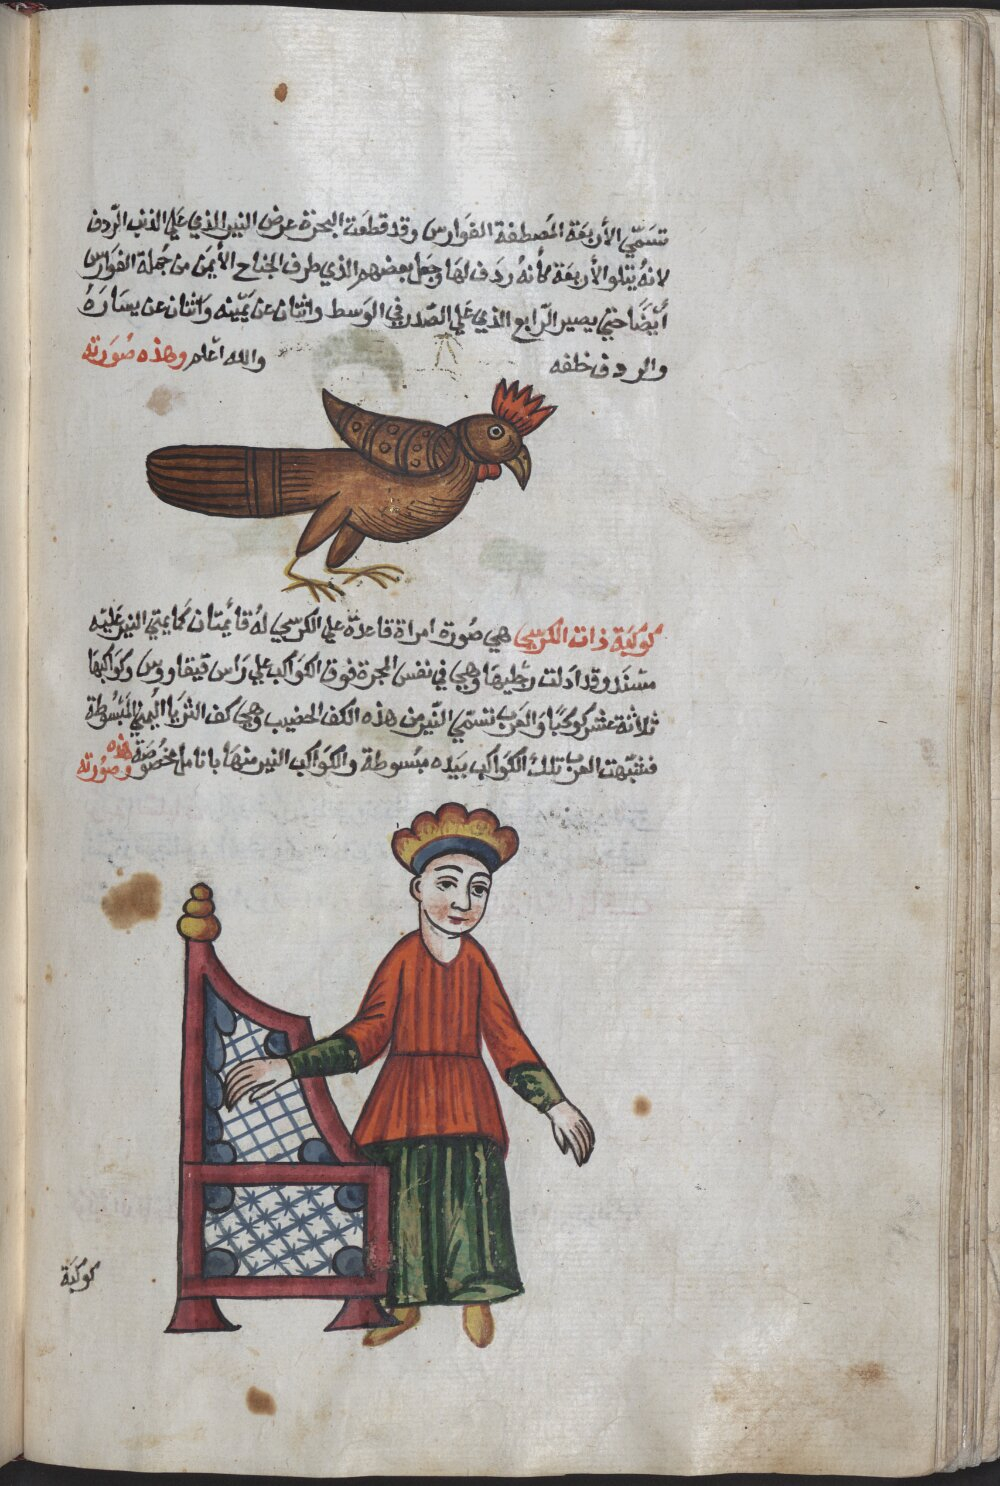 تسَمّي الأربعَة المصَطفة الفوَارس وقد قطعَت المجرة عرض النير الذي عَلي الذنب الرّدف
لانهُ يتلو الأربعَة كأنهُ ردَف لهَا وجَعل بعضهم الذي طرف الجناح الأيمَن من جُملة الفوَارس
أيضَا حتي يصير الرّابع الذي عَلي الصّدر في الوَسط واثنان عن يمّينه وَاثنان عن يسَارَهُ
والردف خلفه والله اعَلم وهذه صُورَته
كوكبَة ذات الكرسي هي صُورة امراة قاعدة علي الكرسي لهُ قائمتان كما يمتي النير عَليه
مسَند وقد ادَلت رجليهَا وهجي في نفس المجرة فوق الكوَاكب علي رَاس قيقاووس وكوَاكبهَا
ثلاثة عشر كوكبًا وَالعرَب تسَمّي النّير من هذه الكف الخضيب وهجي كف الثريا اليُمني المبَسُوطة
فشبّهت العرب تلك الكوَاكب بيَده مبسُوطة والكوَاكب النير منهَا بانامل مخضُوصَة هذه
وصُورته
كوكبَة